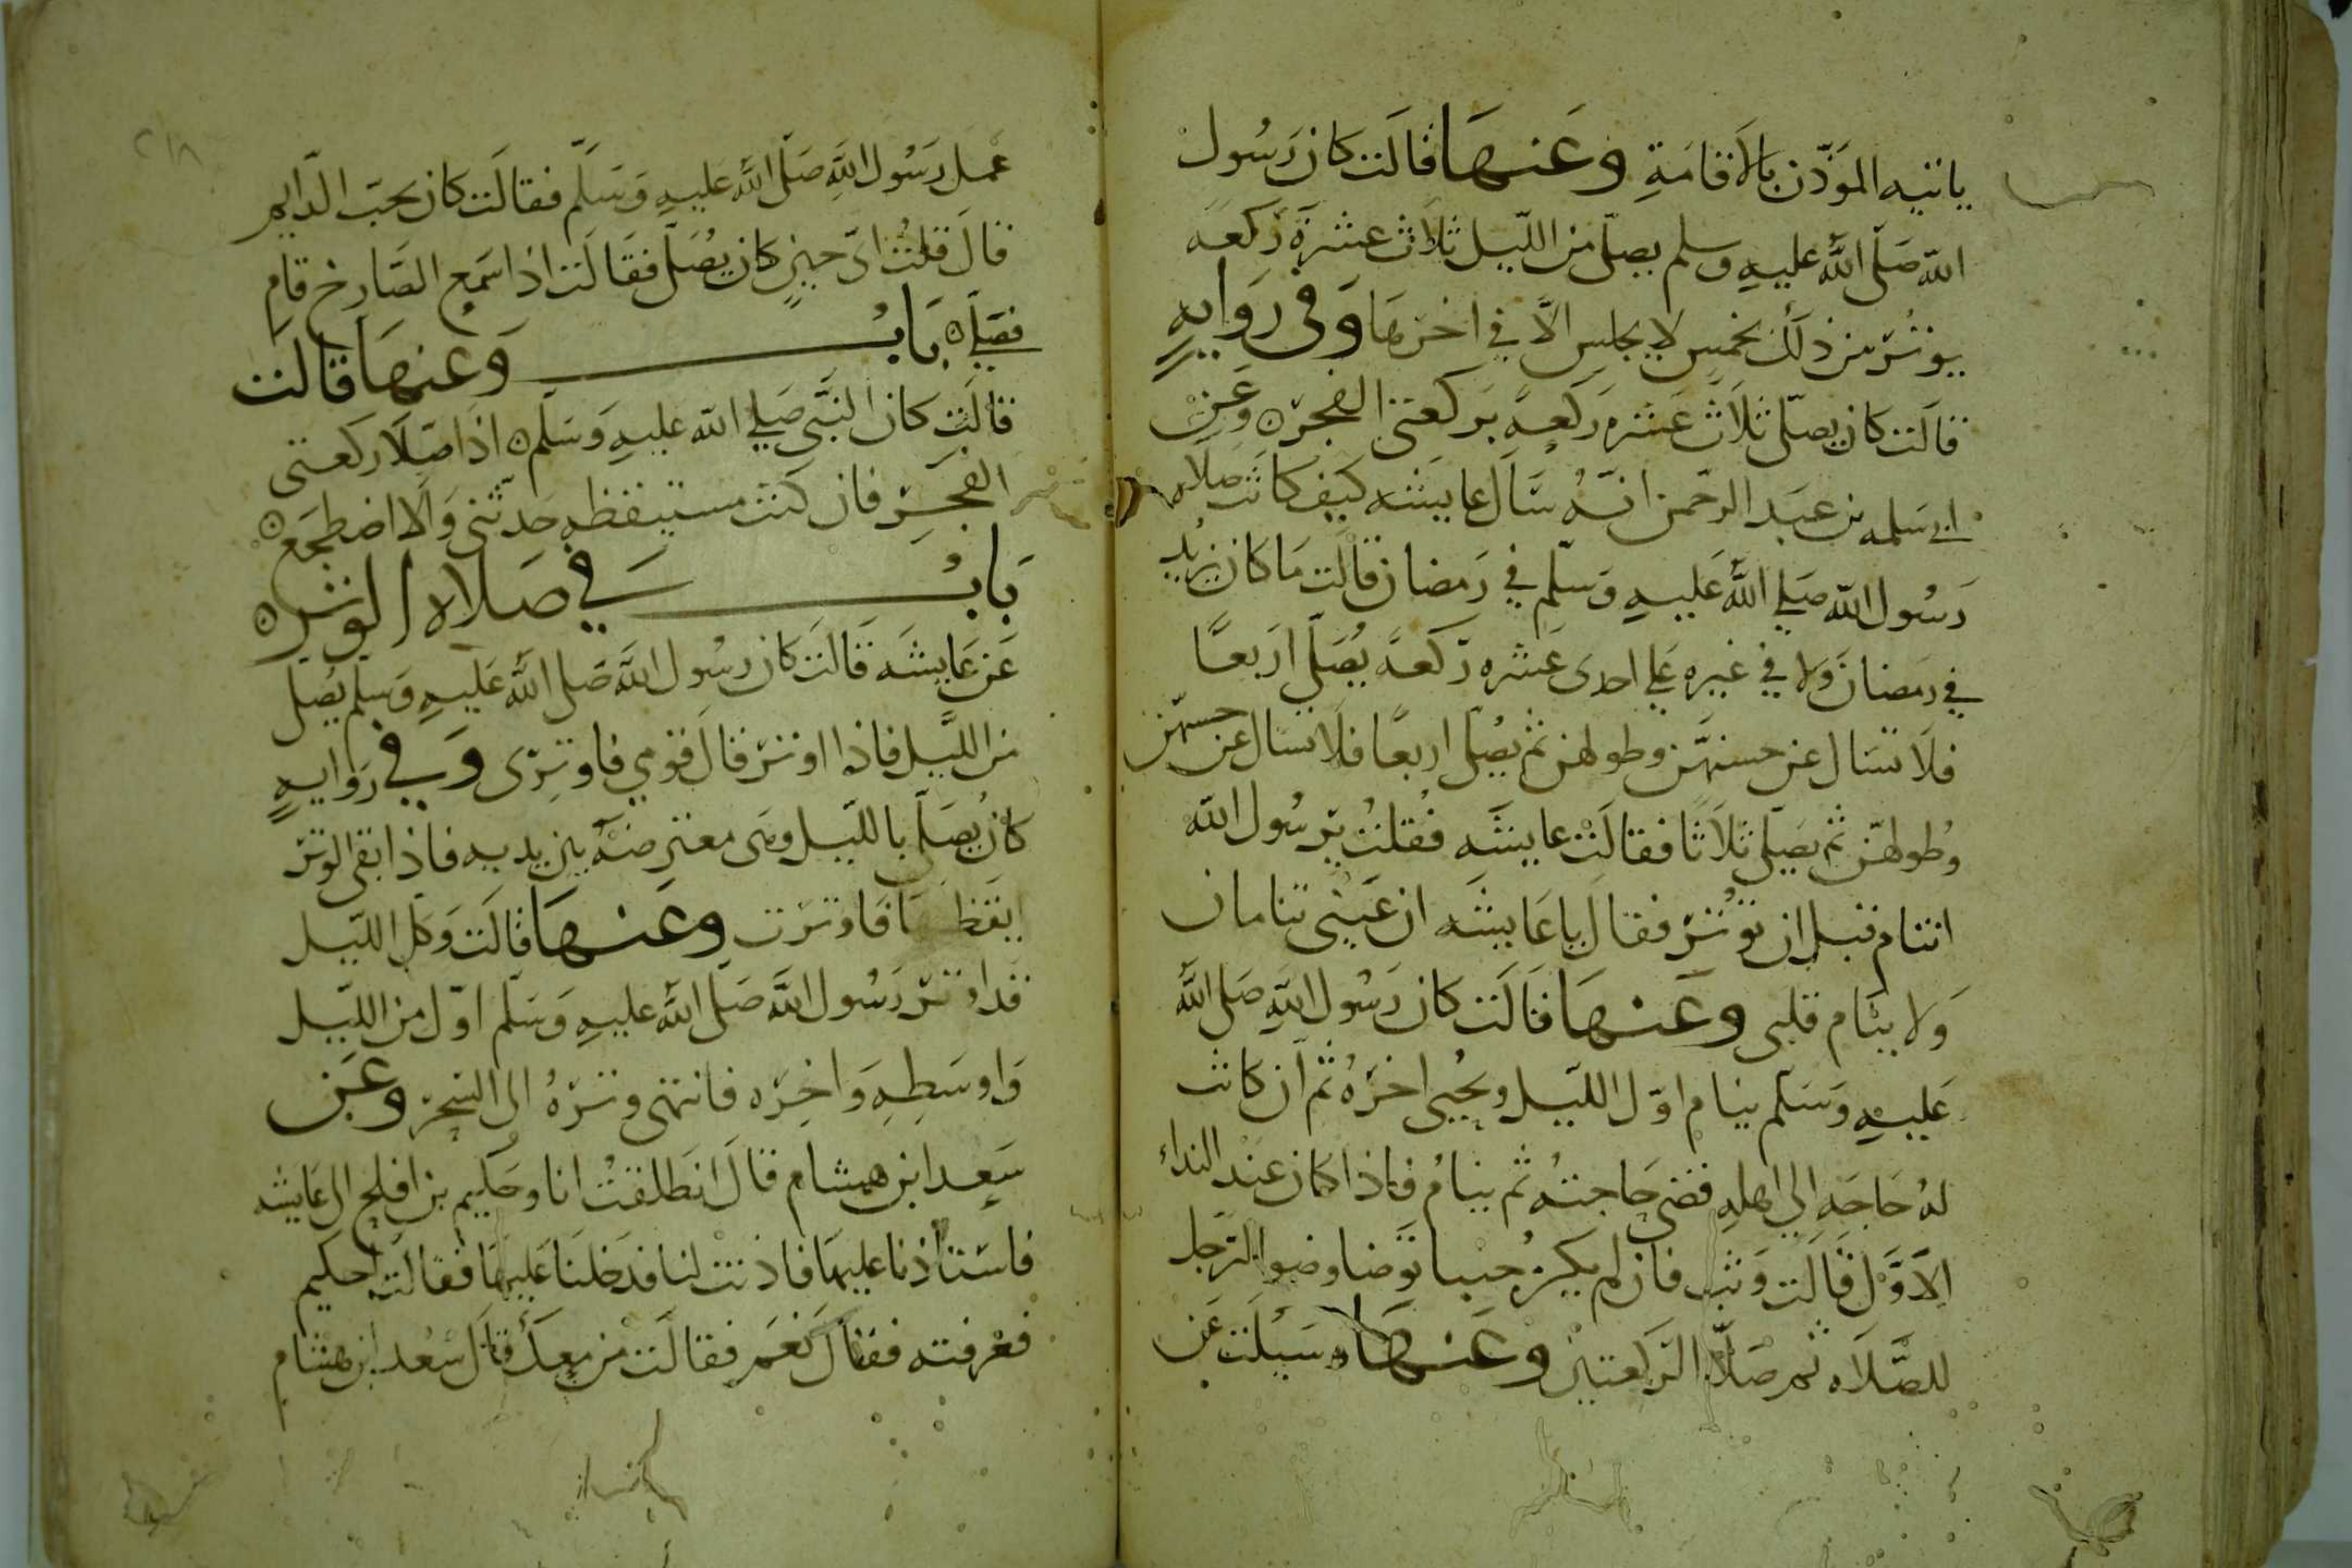 ياتيه المؤذن بالاقامة وعنها قالت كان رسول
الله صلى الله عليه وسلم يصلي من الليل ثلاث عشرة ركعة
يوتر من ذلك بخمس لا يجلس الا في اخرها وفي رواية
قالت كان يصلي ثلاث عشره ركعة بركعتي الفجر وعن
ابي سلمه بن عبد الرحمن انه سال عايشه كيف كانت صلاه
رسول الله صلي الله عليه وسلم في رمضان قالت ما كان يزيد
في رمضان ولا في غيره علي احدى عشره ركعة يصلي اربعا
فلا تسال عن حسنهن وطولهن ثم يصلي اربعا فلا تسال عن حسنهن
وطولهن ثم يصلي ثلاثا فقالت عايشه فقلت يرسول الله
اتنام قبل ان توتر فقال يا عايشه ان عيني تنامان
ولا ينام قلبي وعنها قالت كان رسول الله صلى الله
عليه وسلم ينام اول الليل ويحيي اخره ثم ان كانت
له حاجة الي اهله قضى حاجته ثم ينام فاذا كان عند النداء
الاول قالت وثب فان لم يكن جنبا توضا وضو الرجل
للصلاه ثم صلا الركعتين وعنها وسيلت عن
٢١٨
عمل رسول الله صلى الله عليه وسلم فقالت كان يحب الدايم
قال قلت اي حين كان يصلي فقالت اذا سمع الصارخ قام
فصلي باب وعنها قالت
قالت كان النبي صلي الله عليه وسلم اذا صلا ركعتي
الفجر فان كنت مستيقظه حدثني والا اضطجع
باب في صلاه الوتر
عن عايشه قالت كان رسول الله صلى الله عليه وسلم يصلي
من الليل فاذا اوتر قال قومي فاوتري وفي رواية
كان يصلي بالليل وهي معترضة بين يديه فاذا ابقى الوتر
ايقظها فاوترت وعنها قالت وكل الليل
قد اوتر رسول الله صلى الله عليه وسلم اول من الليل
واوسطه واخره فانتهى وتره الى السحر وعن
سعد ابن هشام قال انطلقت انا وحكيم بن افلح الى عايشه
فاستاذنا عليها فاذنت لنا فدخلنا عليها فقالت احكيم
فعرفته فقال نعم فقالت من معك قال سعد ابن هشام